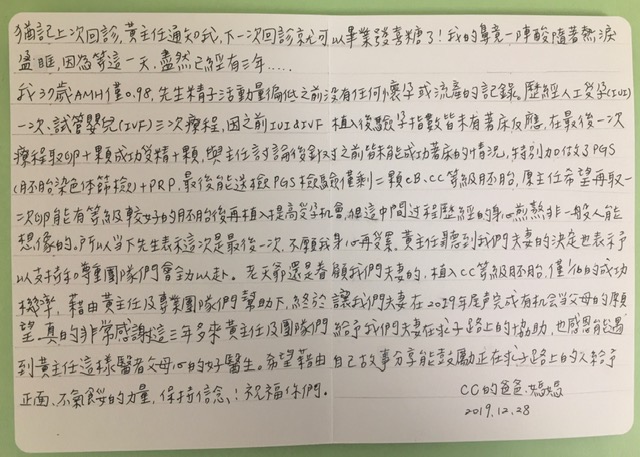 猶記上次回診,黃主任通知我,下一次回診就可以畢業發喜糖了!我的鼻竟一陣酸隨著熱淚
盈眶,因為等這一天,盡然已經有三年.....
我37歲AMH僅0.98,先生精子活動量偏低之前沒有任何懷孕或流產的記錄。歷經人工受孕(IUI)
一次、試管嬰兒(IVF)三次療程,因之前IUI&IVF植入後驗孕指數皆未有著床反應,在最後一次
療程取卵+顆成功受精+顆,與主任討論後針對之前皆未能成功著床的情況,特別加做了PGS
(胚胎染色体篩檢)+PRP,最後能送檢PGS檢驗僅剩二顆CB.CC等級胚胎,原主任希望再取一
二次卵能有等級較好的胚胎後再植入提高受孕机會,但這中間过程歷經的身心煎熬非一般人能
想像的。所以當下先生表示這次是最後一次,不願我身心再受累。黃主任聽到我們夫妻的決定也表示予
以支持和尊重團隊們會全力以赴。老天爺還是眷顧我們夫妻的,植入CC等級胚胎,僅1/10的成功
機率,藉由黃主任及專業團隊們幫助下,終於讓我們夫妻在2019年尾声完成有机会当父母的願
望真的非常感謝這三年多來黃主任及團隊們給予我們夫妻在求子路上的協助,也感恩能遇
到黃主任這樣醫者父母心的好醫生。希望藉由自己故事分享能鼓勵正在求子路上的人給予
正面、不氣餒的力量,保持信念!祝福你們。
CC的爸爸.媽媽
2019.12.28